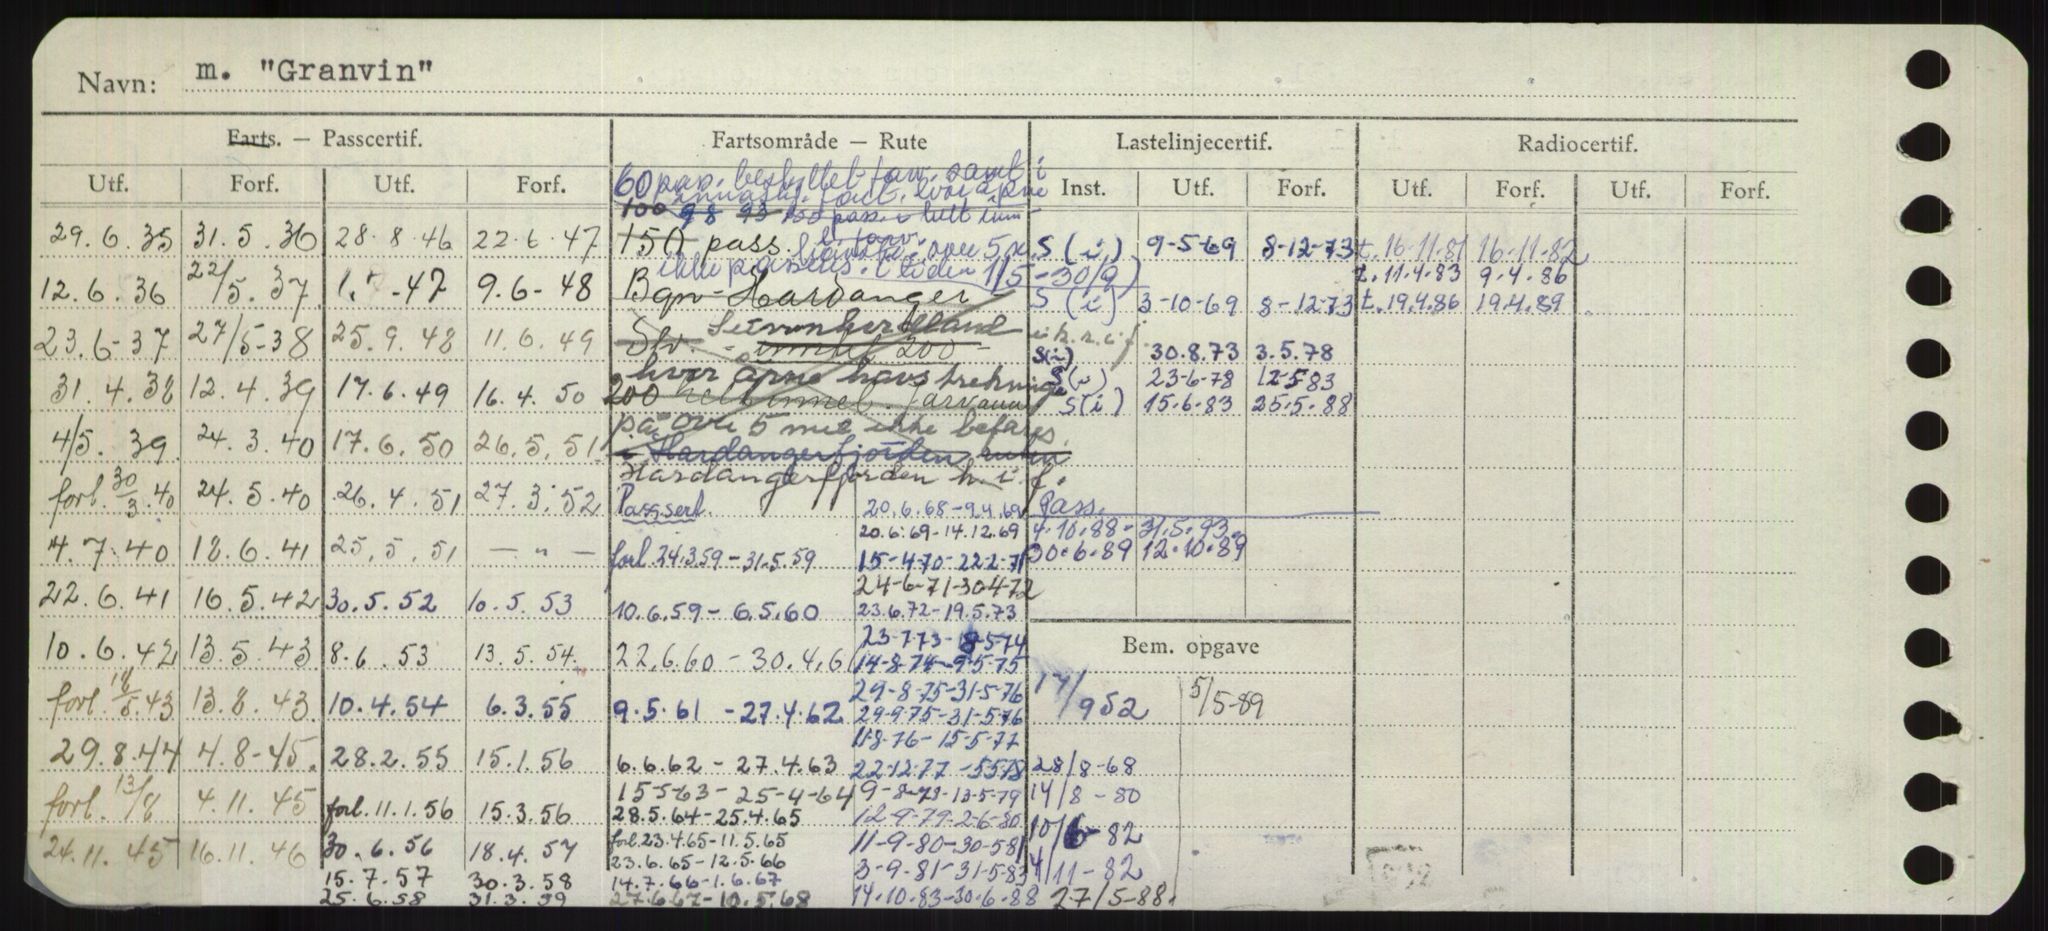 Navn: m. "Granvin"
Farts. — Passcertif.
Utf. Forf. Utf. Forf.
29.6.35 31.5.36 28.8.46 22.6.47
12.6.36 22/5.37 1. -47 9.6-48
23.6-37 27/5-38 25.9.48 11.6.49
31.4.38 12.4.39 17.6.49 16.4.50
4/5.39 24.3.40 17.6.50 26.5.51
forl. 30/3.40 24.5.40 26.4.51 27.3.52
4.7.40 18.6.41 25.5.51 — " —
22.6.41 16.5.42 30.5.52 10.5.53
10.6.42 13.5.43 8.6.53 13.5.54
forl. 18/5.43 13.8.43 10.4.54 6.3.55
29.8.44 4.8-45. 28.2.55 15.1.56
forl. 13/8 4.11.45 forl. 11.1.56 15.3.56
24.11.45 16.11.46 30.6.56 18.4.57
15.7.57 30.3.58
25.6.58 31.3.59
Fartsområde — Rute
60 pass. beskyttet farv. samt i
100 98 93 100 pass. i helt
150 pass. over 5
ikke passeres i tiden 1/5-30/9)
Bgn-Hardanger
Slv. - inntil 200 -
hvor åpne havstrekninger
200 helt innel. farvann
på over 5 mil ikke befares.
i Hardangerfjorden ruten
Hardangerfjorden h. i. f.
Passsert. 20.6.68-9.4.69
20.6.69-14.12.69
forl. 24.3.59-31.5.59 15-4-70-22-2-71
24-6-71-30-4-72
10.6.59-6.5.60 23.6.72-19.5.73
23-7-73-8-5-74
22.6.60-30.4.61 14-8-74-9-5-75
29-8-75-31-5-76
9.5.61 -27.4.62 29-9-75-31-5-76
11-8-76-15-5-77
6.6.62-27.4.63 22-12-77-5-5-78
15-5-63-25-4-64 9-8-78-13-5-79
28.5.64-25.4.65 12-9-79-2-6-80
forl. 23.4.65-11.5.65 11-9-80-30-5-81
23.6.65-12.5.66 3-9-81-31-5-83
14.7.66-1.6.67
27.6.67-10.5.68 14-10-83-30-6-88
Lastelinjecertif.
Inst. Utf. Forf.
S(i) 9-5-69 8-12-73
S(i) 3-10-69 8-12-73
S(i) 30.8.73 3.5.78
S(i) 23-6-78 12-5-83
S(i) 15.6.83 25.5.88
Pass.
4.10.88-31.5.93.
30.6.89 12.10.89
Bem. opgave
17/9 52 5/5-89
28/8-68
14/8-80
10/6-82
4/11-82
27/5-88.
Radiocertif.
Utf. Forf. Utf. Forf.
t. 16-11.81 16-11-82
t. 11.4.83 9.4.86
t. 19.4.86 19.4.89